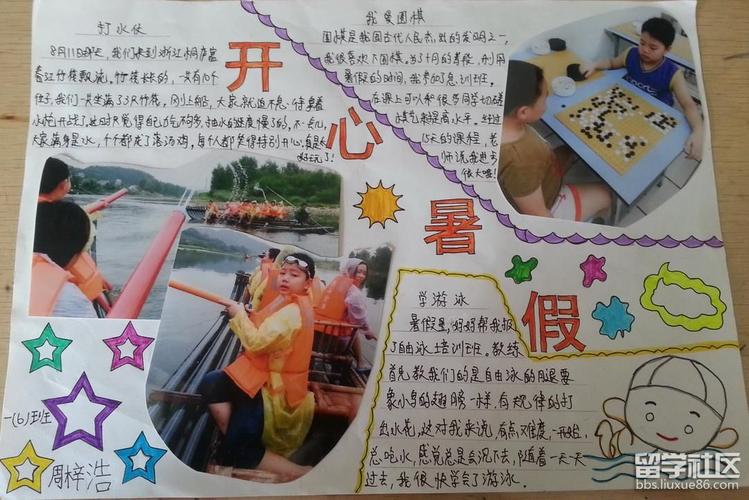 打水仗
8月11日那天，我们来到浙江桐庐富
春江竹筏漂流，竹筏长长的，一共有10个
位子，我们一共坐满了3只竹筏，刚上船，大家就迫不及待拿着
水炮开战了，这时只觉得自己力气不够，抽水的速度慢了的，不一会儿，
大家满身是水，个个都成了落汤鸡，每个人都觉得特别开心，真是
好玩了！
开心暑假
我爱围棋
围棋是我国古代人民杰出的发明之一，
我很喜欢下围棋，为了十月的考段，利用
暑假的时间，我参加了急训班。
在课上可以和很多同学切磋
棋艺来提高水平，经过
15天的课程，老
师说我进步
很大噢！
学游泳
暑假里，妈妈帮我报
了自由泳培训班。教练
首先教我们的是自由泳的腿要
象小鸟的翅膀一样，有规律的打
出水花，这对我来说有点难度，一开始，
总吃水，感觉总是会沉下去，随着一天一天
过去，我很快学会了游泳。
一(6)班
周梓浩
留学社区
bbs.liuxue86.com